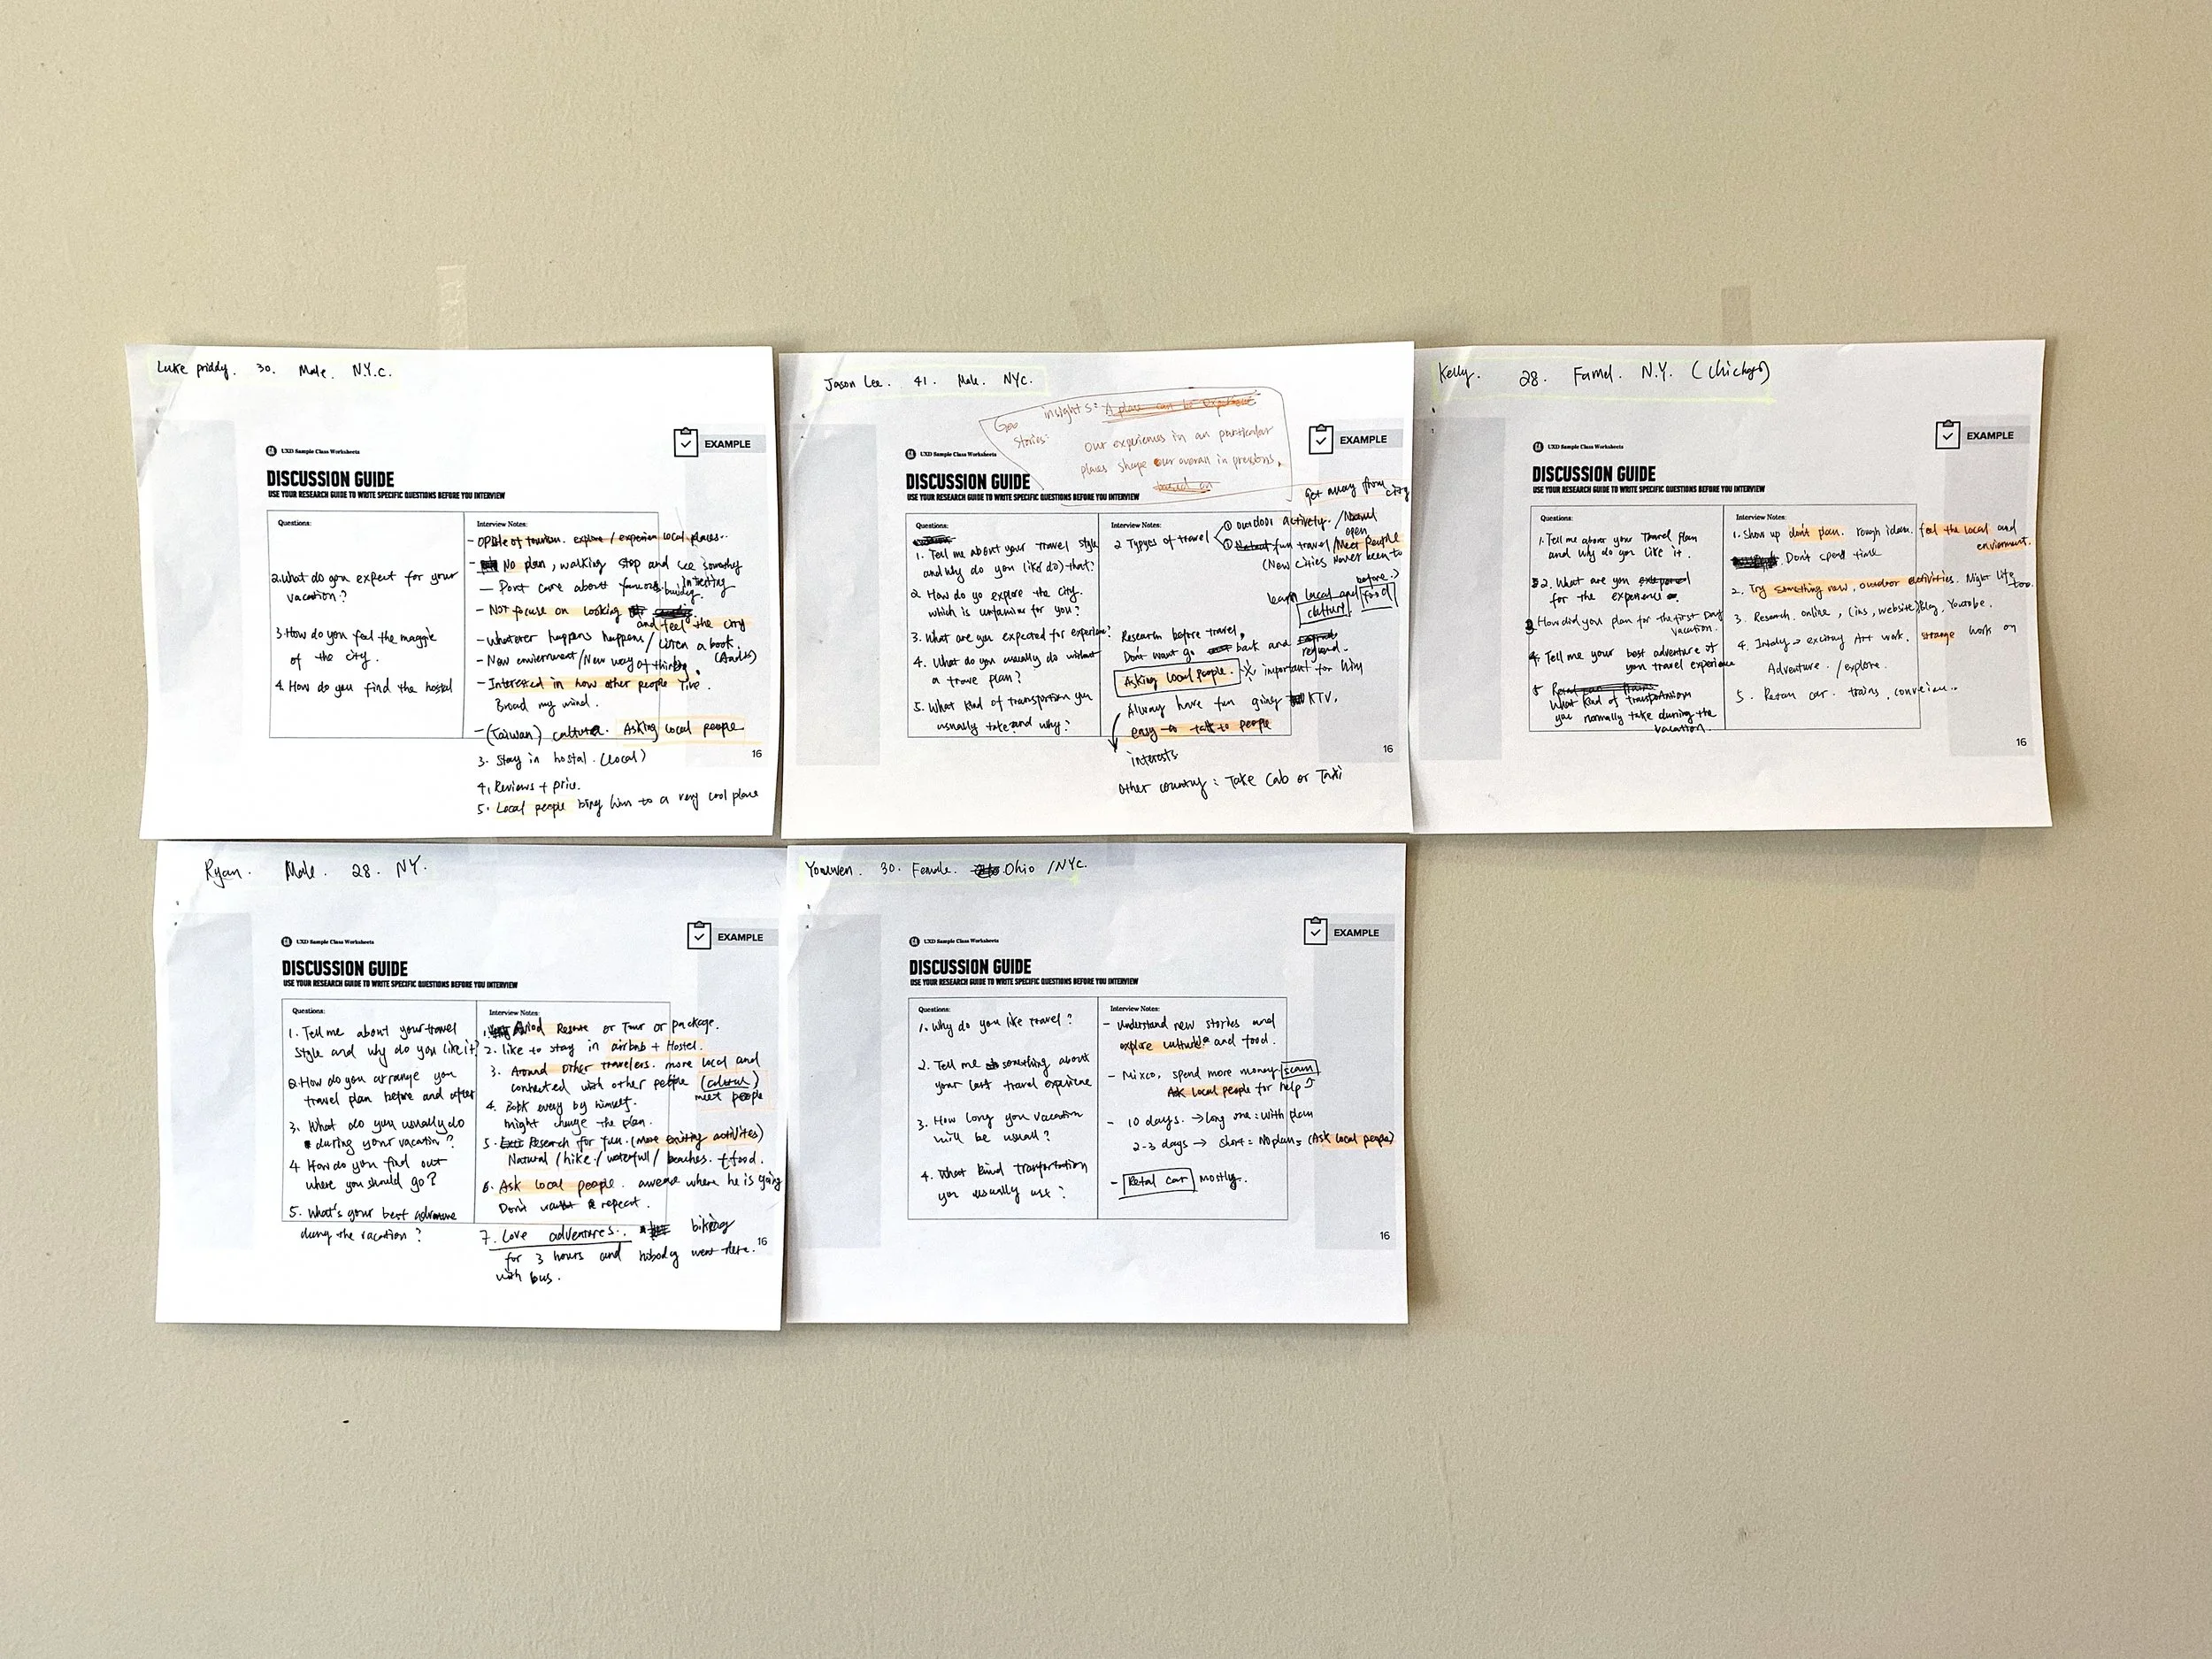 Luke priddy. 30. Male. N.Y.C.
EXAMPLE
UXD Sample Class Worksheets
DISCUSSION GUIDE
USE YOUR RESEARCH GUIDE TO WRITE SPECIFIC QUESTIONS BEFORE YOU INTERVIEW
Questions:
2. What do you expect for your
vacation?
3. How do you feel the maggie
of the city.
4. How do you find the hostal
Interview Notes:
- of tourism. explore / experien local places..
- No plan, walking stop and see
interesting
- Dont care about famous building.
- Not focus on looking
and feel the city
- Whatever happens happens / Listen a book.
- New enviernment / New way of thinking
- Interested in how other people live.
Broad my mind.
- (Taiwan) culture. Asking local people
3. Stay in hostal. (local)
4. Reviews + price.
5. Local people bring him to a very cool place
16
Jason Lee. 41. Male. NYC.
insights: A place can be
Geo
Stories: Our experiences in an particular
places shape our overall
based on
EXAMPLE
UXD Sample Class Worksheets
DISCUSSION GUIDE
USE YOUR RESEARCH GUIDE TO WRITE SPECIFIC QUESTIONS BEFORE YOU INTERVIEW
Questions:
1. Tell me about your travel style
and why do you (like do) that?
2. How do yo explore the city.
which is unfamiar for you?
3. What are you expected for experien?
4. What do you usually do without
a trave plan?
5. What kind of transportion you
usually take and why?
Interview Notes:
get away from
city
2 Types of travel
① outdoor activety. /
open
fun travel / Meet People
(New Cities Never been to
before.)
learn local and food
culture
Research before travel,
Don't want go back and
Asking local people. important for him
Always have fun going KTV.
easy to talk to people
interests.
Other country: Take Cab or Taxi
16
Kelly. 28. Famel. N.Y. (Chichago)
EXAMPLE
UXD Sample Class Worksheets
DISCUSSION GUIDE
USE YOUR RESEARCH GUIDE TO WRITE SPECIFIC QUESTIONS BEFORE YOU INTERVIEW
Questions:
1. Tell me about your Travel plan
and why do you like it.
2. What are you
for the experience
3. How did you plan for the first Day
vacation.
4. Tell me your best adventure of
you travel experience
5
What kind of
you normally take during the
vacation.
Interview Notes:
1. Show up don't plan. rough idea. feel the local and
enviorment.
Don't spend time
2. Try something new, outdoor activities. Night life
too.
3. Research online, (ins, website) Blog, Youtobe.
4. exciting Art work. strange work on
Adventure. / explore.
5. car. trains,
16
Ryan. Male. 28. NY.
EXAMPLE
UXD Sample Class Worksheets
DISCUSSION GUIDE
USE YOUR RESEARCH GUIDE TO WRITE SPECIFIC QUESTIONS BEFORE YOU INTERVIEW
Questions:
1. Tell me about your travel
style and why do you like it?
2. How do you arrange you
travel plan before and after
3. What do you usually do
during your vacation?
4 How do you find out
where you should go?
5. What's your best adventure
dung the vacation?
Interview Notes:
1. or Tour or package.
2. like to stay in airbnb + Hostel.
3. Around other travelers. more local and
connected with other people (cultural)
meet people
4. Book every by himself.
might change the plan.
5. Research for fun. (more exciting activites)
Natural / hike / waterfull / beaches. + food.
6. Ask local people. awear where he is going
Don't repeat.
7. Love adventures. biking
for 3 hours and nobody went there.
with bus.
16
Youwen. 30. Female. Ohio / NYC.
EXAMPLE
UXD Sample Class Worksheets
DISCUSSION GUIDE
USE YOUR RESEARCH GUIDE TO WRITE SPECIFIC QUESTIONS BEFORE YOU INTERVIEW
Questions:
1. Why do you like travel?
2. Tell me something about
your last travel experience
3. How long you vacation
will be usuall?
4. What kind tranportation
you usually use?
Interview Notes:
- Understand new stories and
explore culture and food.
- Mixco, spend more money scam
Ask local people for help
- 10 days. → long one: with plan
2-3 days → short = No plan = (Ask local people)
- Retal car mostly.
16